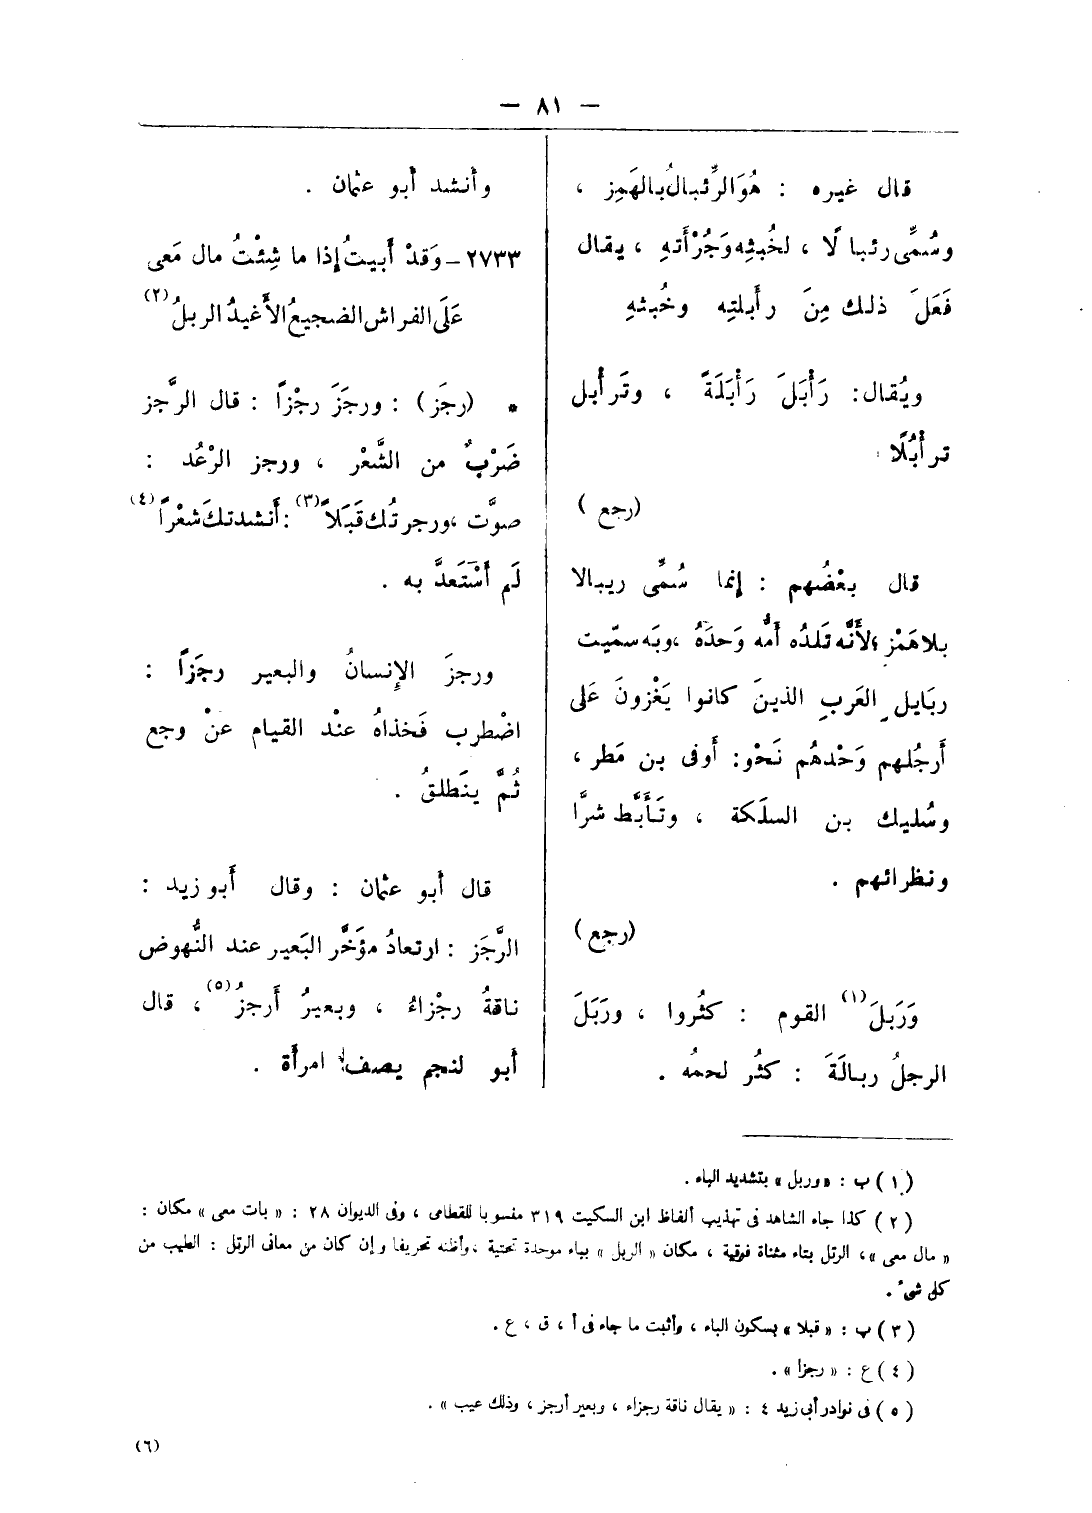 — ٨١ —
قال غيره : هُوَ الرِّئبالُ بالهَمِز ،
وسُمِّى رئبا لًا ، لخُبثِه وَجُرْأتهِ ، يقال
فَعَلَ ذلك مِنَ رأبلتِه وخُبثهِ
ويُقال: رَأْبَلَ رَأْبَلَةً ، وتَرأبل
ترأبُلًا
(رجع )
قال بعْضُهم : إنما سُمِّى ريبالا
بلاهَمْز ؛لأنَّه تلدُه أمُّه وَحدَهُ ،وبَه سمّيت
ربَايل العَربِ الذينَ كانوا يَغْزونَ عَلى
أرجُلهم وَحْدهُم نَحْو: أوفى بن مَطر ،
وسُليك بن السلَكة ، وتَأبَّط شرَّا
ونظرائهم .
(رجع )
وَرَبلَ(١) القوم : كثُروا ، ورَبَلَ
الرجلُ ربالَةَ : كثُر لحمُه .
وأنشد أبو عثمان .
٢٧٣٣ – وَقدْ أبيتُ إذا ما شِئتُ مال مَعى
عَلَى الفراش الضجيعُ الأغيدُ الربلُ(٢)
* (رجَز) : ورجَزَ رجْزاً : قال الرَّجز
ضَرْبٌ من الشَّعْر ، ورجز الرْعُد :
صوَّت ،ورجر تُك قَبَلاً(٣) : أنشدتكَ شعْراً(٤)
لَم أسْتَعدَّ به .
ورجزَ الإنسانُ والبعير رجَزاً :
اضْطرب فَخذاهُ عنْد القيام عنْ وجع
ثُمَّ ينَطلقُ .
قال أبو عثمان : وقال أبو زيد :
الرَّجَز : ارتعادُ مؤخَّر البَعير عند النُّهوض
ناقةُ رجْزاءُ ، وبعيرُ أرجزُ(٥) ، قال
أبو لنجم يصف امرأة .
(١) ب : «وربل» بتشديد الباء .
(٢) كذا جاء الشاهد فى تهذيب ألفاظ ابن السكيت ٣١٩ منسوبا للقطامى ، وفى الديوان ٢٨ : «بات معى» مكان :
«مال معى»، الرتل بتاء مثناة فوقية ، مكان «الربل» بباء موحدة تحتية ،وأظنه تحريفا وإن كان من معانى الرتل : الطيب من
كل شىء .
(٣) ب : «قبلا» بسكون الباء ، وأثبت ما جاء فى أ ، ق ، ع .
(٤) ع : «رجزا» .
(٥) فى نوادر أبى زيد ٤ : «يقال ناقة رجزاء ، وبعير أرجز ، وذلك عيب» .
(٦)